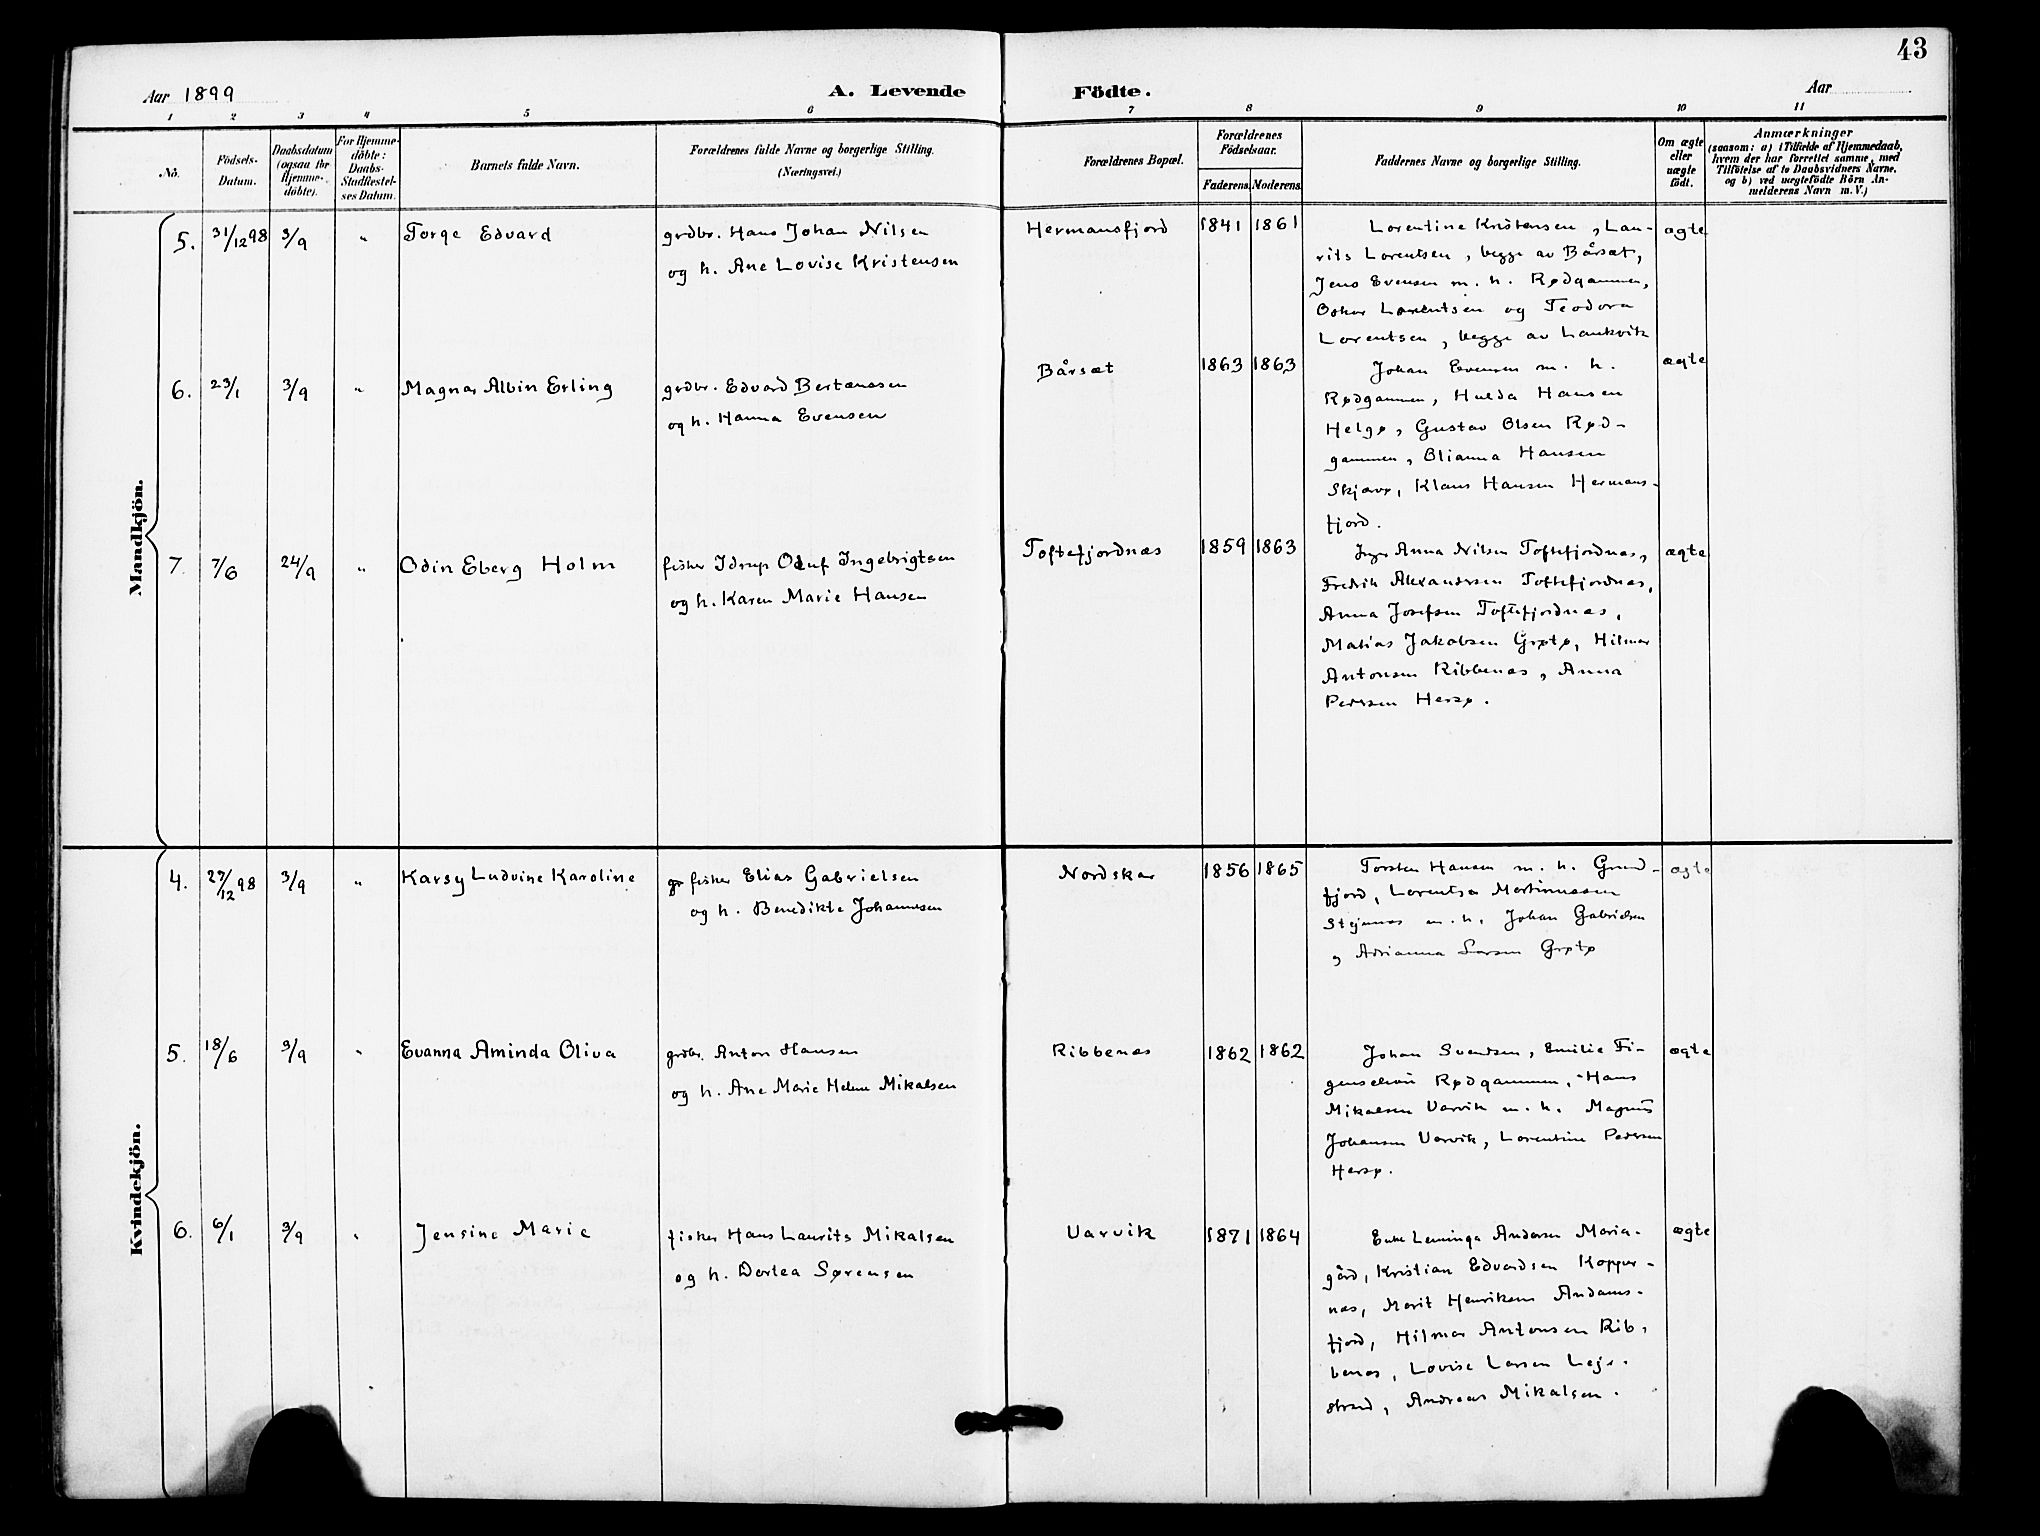 43
Aar 1899
A. Levende Födte.
Aar
1 2 3 4 5 6 7 8 9 10 11
No.
Födsels-Datum.
Daabsdatum (ogsaa for Hjemme-döbte).
For Hjemme-döbte: Daabs-Stadfestel-ses Datum.
Barnets fulde Navn.
Forældrenes fulde Navne og borgerlige Stilling.
(Næringsvei.)
Forældrenes Bopæl.
Forældrenes Födselsaar.
Faderens. Moderens.
Faddernes Navne og borgerlige Stilling.
Om ægte eller uægte födt.
Anmærkninger
(saasom: a) i Tilfælde af Hjemmedaab,
hvem der har forrettet samme, med
Tilföielse af to Daabsvidners Navne,
og b) ved uægtefödte Börn An-
melderens Navn m. V.)
Mandkjön.
5. 31/12 98 3/9 " Torge Edvard
grdbr. Hans Johan Nilsen
og h. Ane Lovise Kristensen
Hermansfjord 1841 1861
Lorentine Kristensen, Lau-
rits Lorentsen, begge av Bårsæt,
Jens Evensen m. h. Rødgammen,
Oskar Lorentsen og Teodora
Lorentsen, begge av Laukvik
ægte
6. 23/1 3/9 " Magnar Albin Erling
grdbr. Edvard Bertæussen
og h. Hanna Evensen
Bårsæt 1863 1863
Johan Evensen m. h.
Rødgammen, Hulda Hansen
Helgø, Gustav Olsen Rød-
gammen, Olianna Hansen
Skjærvø, Klaus Hansen Hermans-
fjord.
ægte
7. 7/6 24/9 " Odin Eberg Holm
fisker Idrup Oluf Ingebrigtsen
og h. Karen Marie Hansen
Toftefjordnæs 1859 1863
Inger Anna Nilsen Toftefjordnæs,
Fredrik Alexandersen Toftefjordnæs,
Anna Josefsen Toftefjordnæs,
Matias Jakobsen Grøtø, Hilmar
Antonsen Ribbenæs, Anna
Pedersen Hersø.
ægte
Kvindekjön.
4. 27/12 98 3/9 " Karsy Ludvine Karoline
fisker Elias Gabrielsen
og h. Benedikte Johannesen
Nordskar 1856 1865
Torsten Hansen m. h. Grund-
fjord, Lorentsa Martinussen
m. h. Johan Gabrielsen
, Adrianna Larsen Grøtø
ægte
5. 18/6 3/9 " Evanna Aminda Oliva
grdbr. Anton Hansen
og h. Ane Marie Helene Mikalsen
Ribbenæs 1862 1862
Johan Svendsen, Emilie Fi-
Rødgammen, Hans
Mikalsen Varvik m. h. Magnus
Johansen Varvik, Lorentine Pedersen
Hersø.
ægte
6. 6/1 3/9 " Jensine Marie
fisker Hans Laurits Mikalsen
og h. Dortea Sørensen
Varvik 1871 1864
Enke Leminga Andersen Maria-
gård, Kristian Edvardsen Kopper-
næs, Marit Henriksen Andams-
fjord, Hilmar Antonsen Rib-
benæs, Lovise Larsen Leje-
strand, Andreas Mikalsen.
ægte